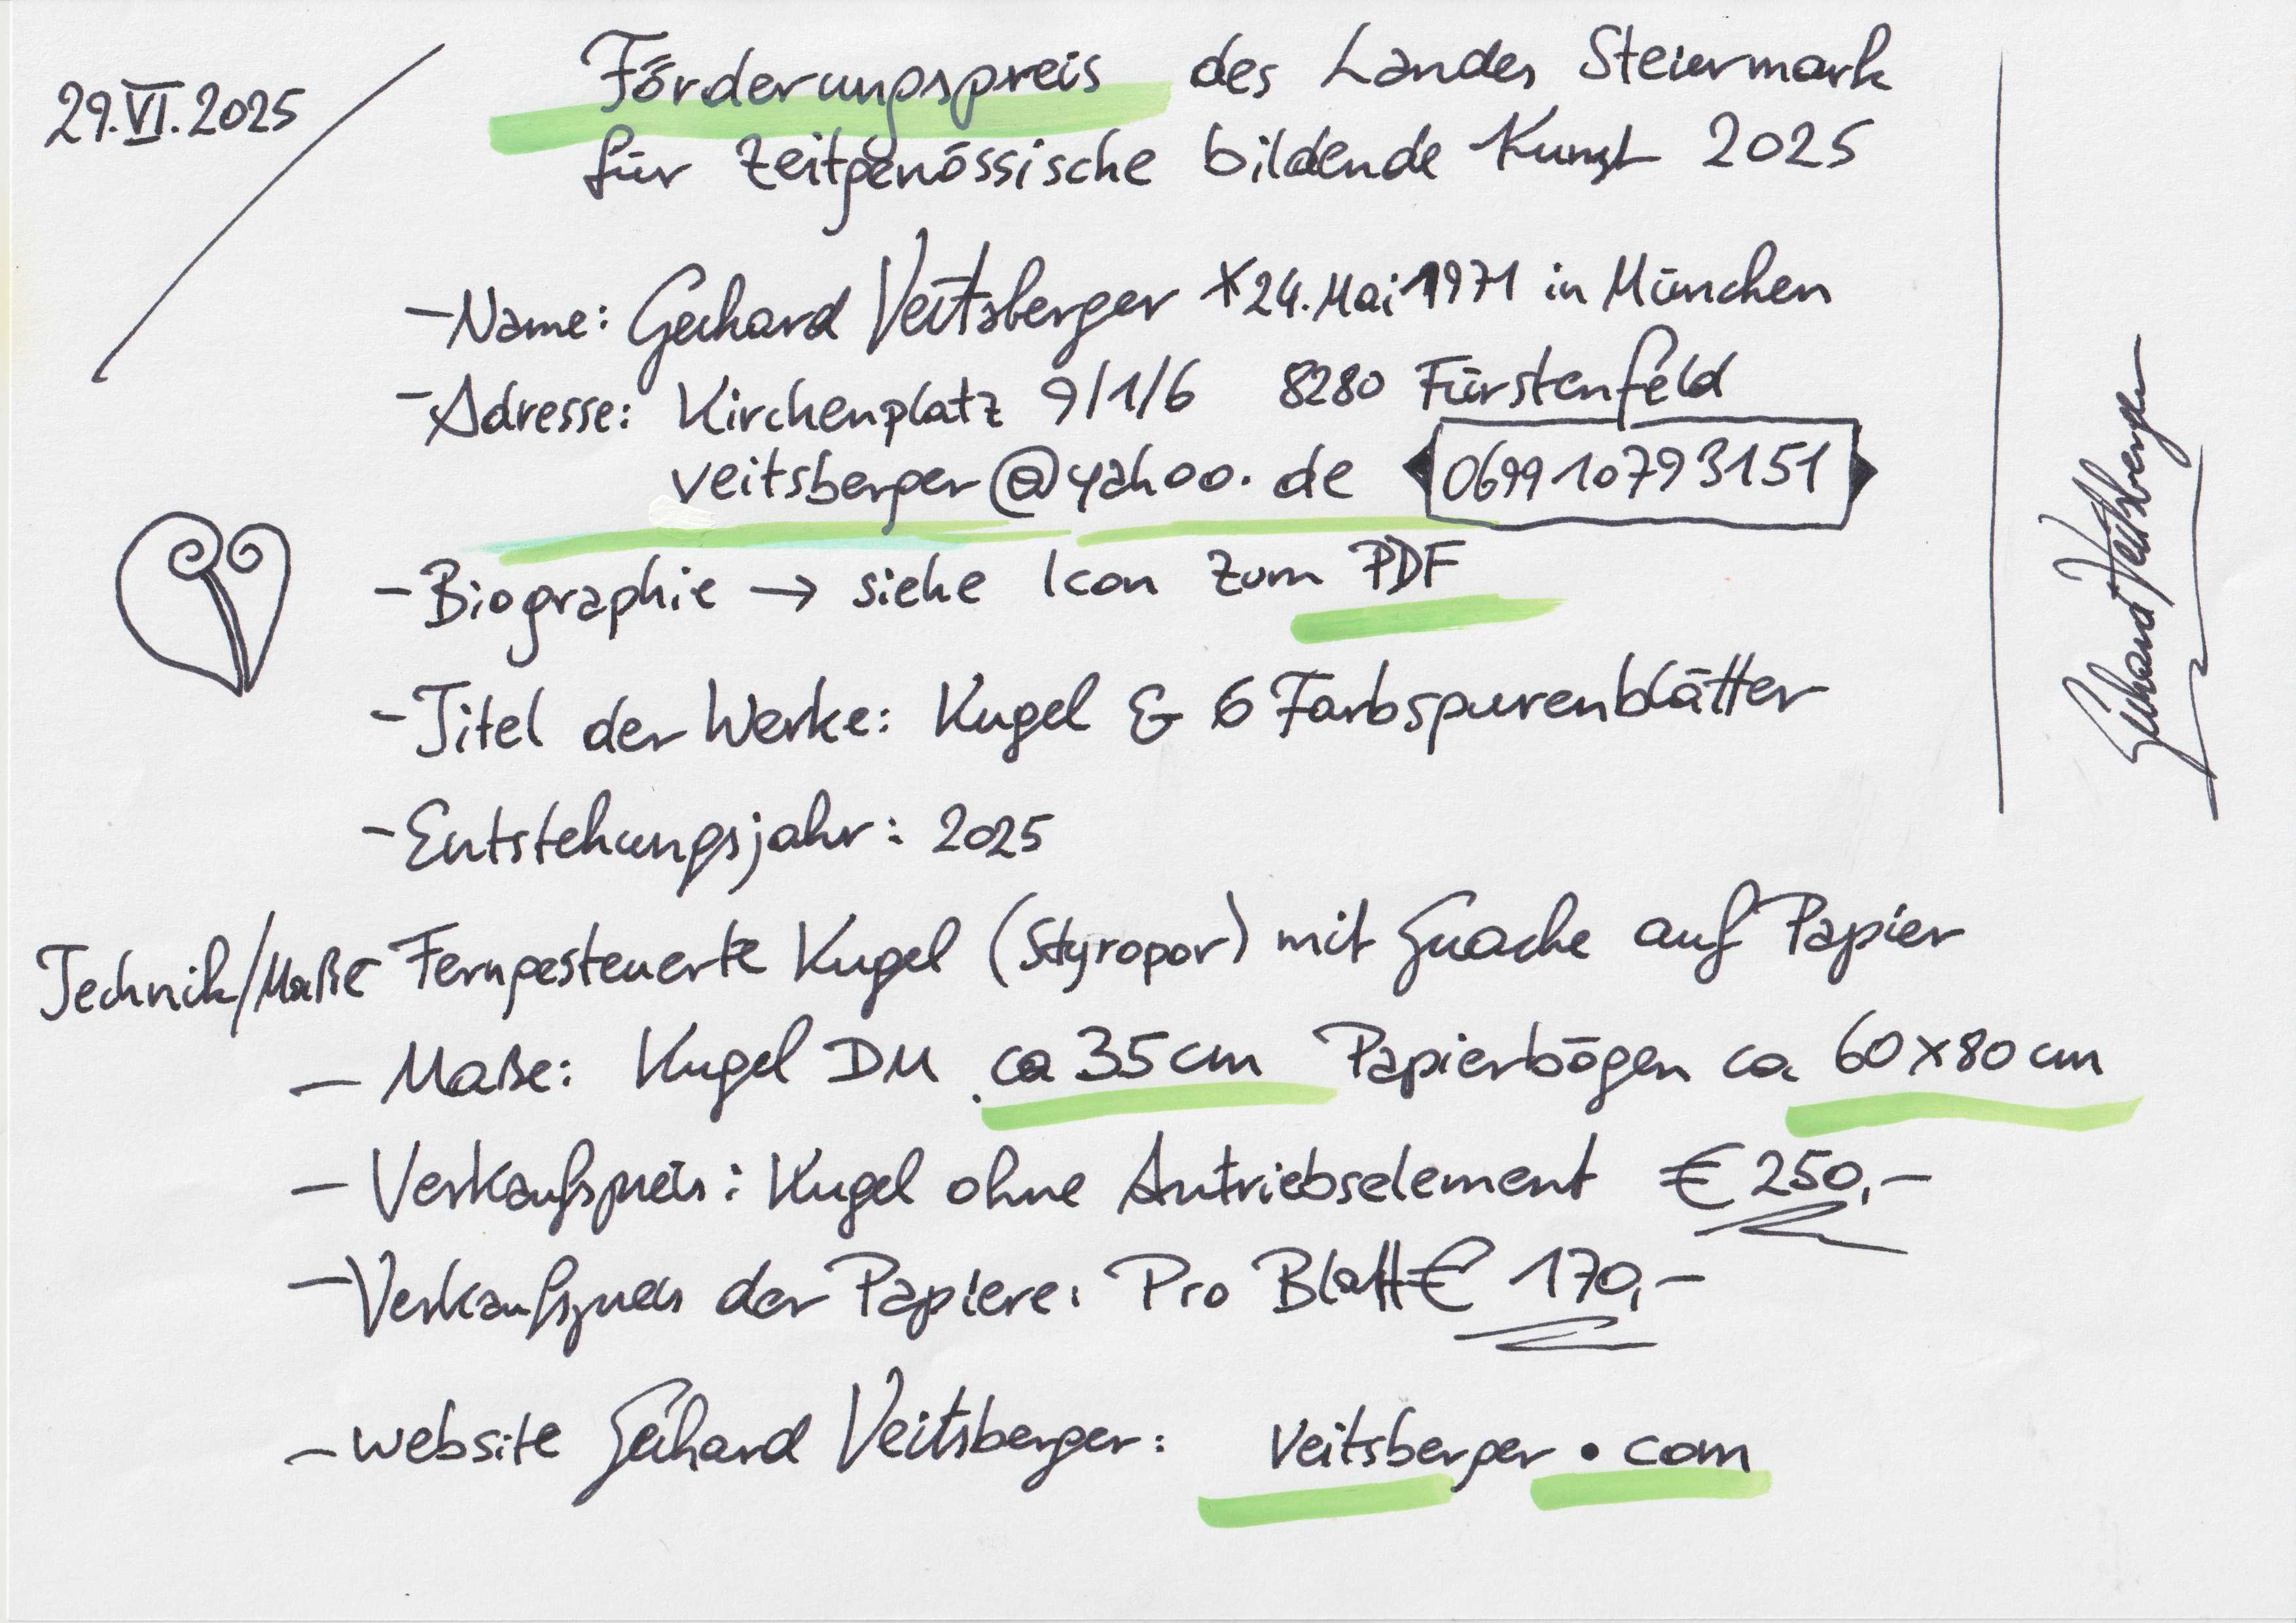 29.VI.2025
Förderungspreis des Landes Steiermark
für zeitgenössische bildende Kunst 2025
- Name: Gerhard Veitsberger *24. Mai 1971 in München
- Adresse: Kirchenplatz 9/1/6 8280 Fürstenfeld
veitsberger@yahoo.de 069910793151
- Biographie → siehe Icon zum PDF
- Titel der Werke: Kugel & 6 Farbspurenblätter
- Entstehungsjahr: 2025
Technik/Maße Ferngesteuerte Kugel (Styropor) mit Guache auf Papier
- Maße: Kugel DM ca 35 cm Papierbögen ca 60x80 cm
- Verkaufspreis: Kugel ohne Antriebselement € 250,-
- Verkaufspreis der Papiere: Pro Blatt € 170,-
- Website Gerhard Veitsberger: Veitsberger.com
Gerhard Veitsberger